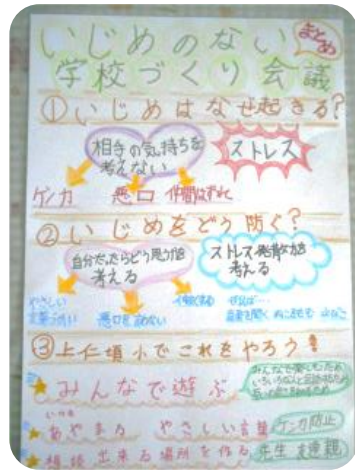 いじめのない
まとめ
学校づくり会議
①いじめはなぜ起きる?
相手の気持ちを
考えない
ストレス
ケンカ 悪口 仲間はずれ
②いじめをどう防ぐ?
自分だったらどう思うかを
考える
ストレス発散方法を
考える
やさしい
言葉づかい
悪口を言わない
仲良くする
たとえば…
音楽を聞く
③上仁頃小でこれをやろう!
みんなで遊ぶ
あやまる やさしい言葉
ケンカ防止
相談出来る場所を作る
先生 友達 親